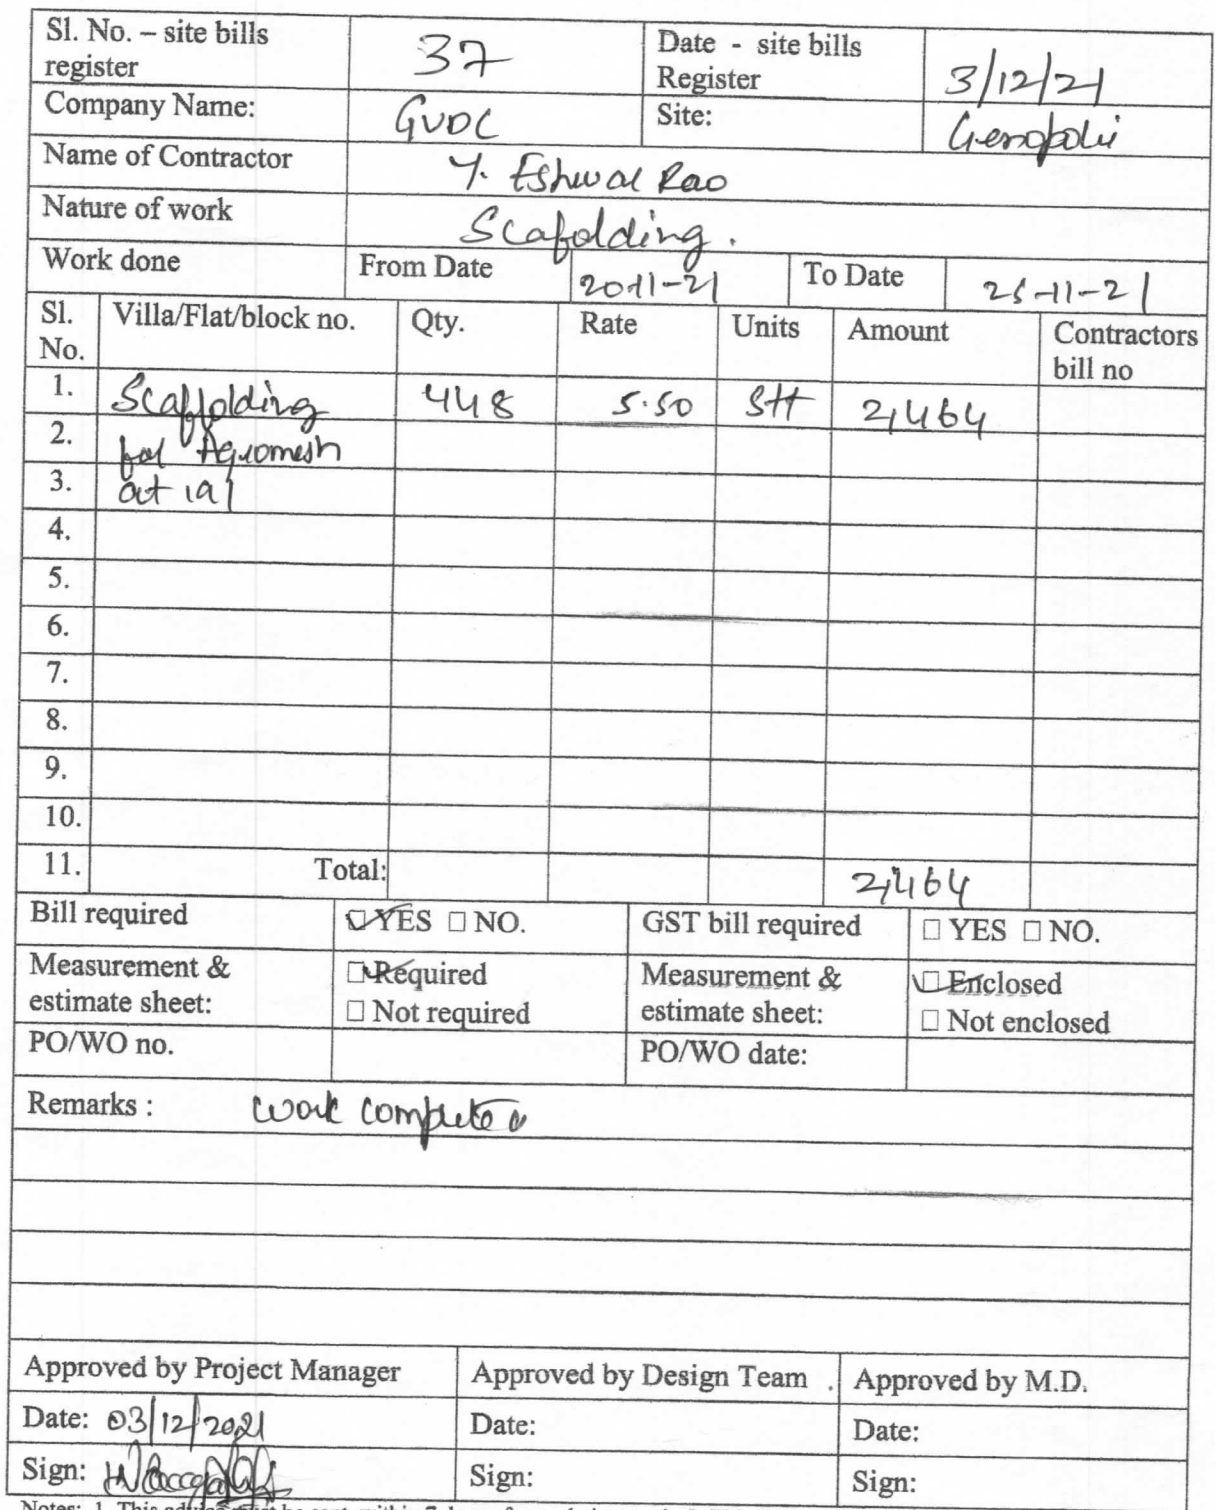 Sl. No. – site bills register 37 Date - site bills Register 3/12/21
Company Name: GVDC Site: Genopolis
Name of Contractor Y. Eshwar Rao
Nature of work Scafolding.
Work done From Date 20-11-21 To Date 25-11-21
Sl. No. Villa/Flat/block no. Qty. Rate Units Amount Contractors bill no
1. Scaffolding 448 5.50 Sft 2,464
2. for Aquomesh
3. at 191
4.
5.
6.
7.
8.
9.
10.
11. Total: 2,464
Bill required ☑ YES □ NO. GST bill required □ YES □ NO.
Measurement & estimate sheet: ☑ Required □ Not required Measurement & estimate sheet: ☑ Enclosed □ Not enclosed
PO/WO no. PO/WO date:
Remarks : work completed
Approved by Project Manager Approved by Design Team . Approved by M.D.
Date: 03/12/2021 Date: Date:
Sign: Sign: Sign:
Notes: 1. This